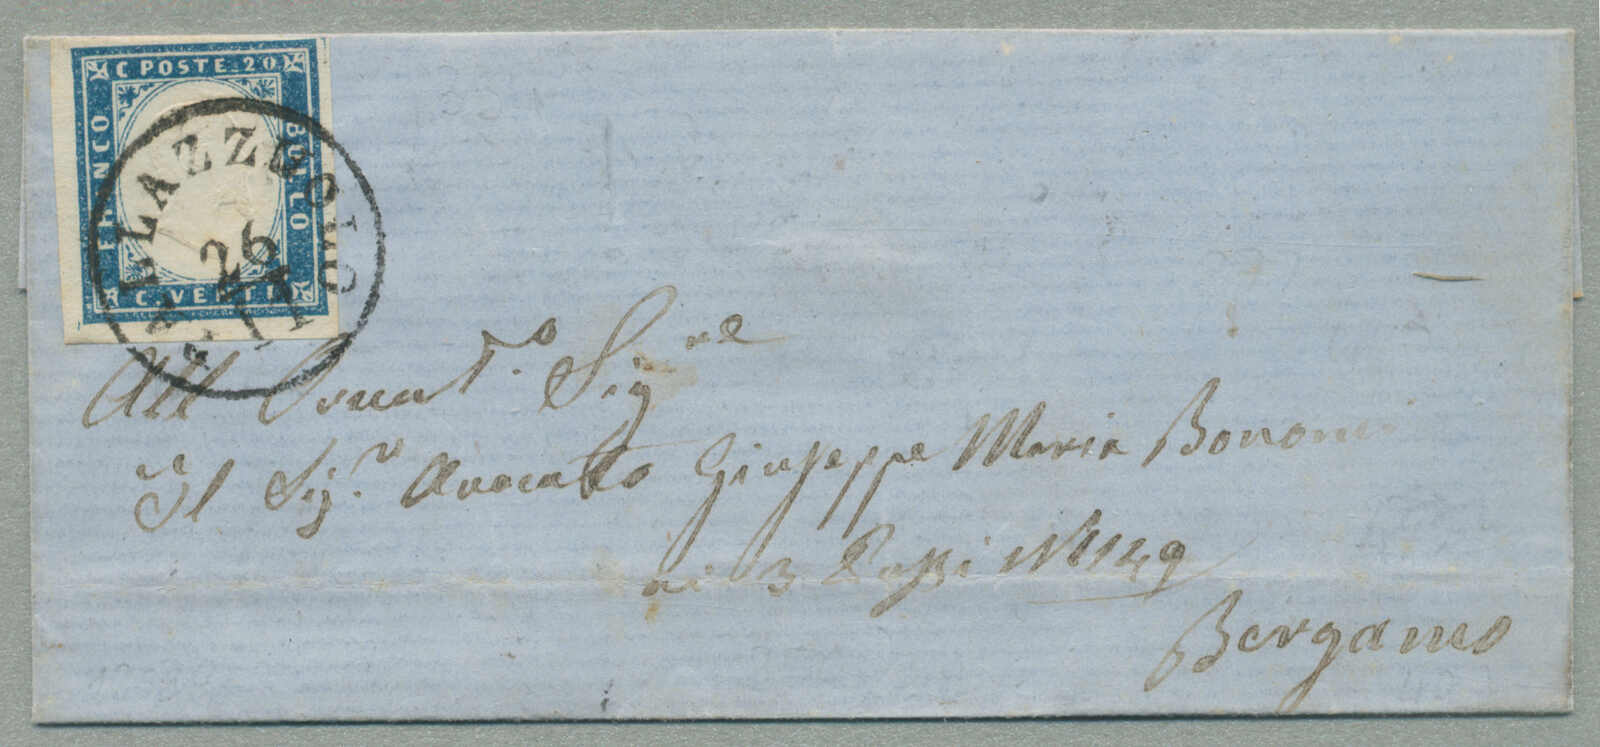 C POSTE 20
FRANCO
BOLLO
C. VENTI
PALAZZUOLO
26
All Ornat.º Sigʳᵉ
Il Sig.ʳ Avocato Giuseppe Maria Bonomi
ai 3 Passi Nº 149
Bergamo